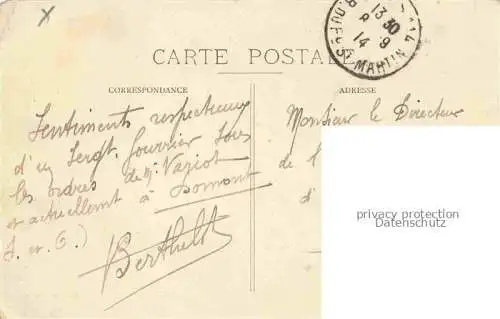 CARTE POSTALE
CORRESPONDANCE
Sentiments respectueux
d'un Sergt. fourrier sous
les ordres de Mr. Vaziot
et actuellemt à Domont
S. et O.)
Berthelot
ADRESSE
Monsieur le Directeur
de l
d'
13 30
14 9
ST MARTIN
privacy protection
Datenschutz